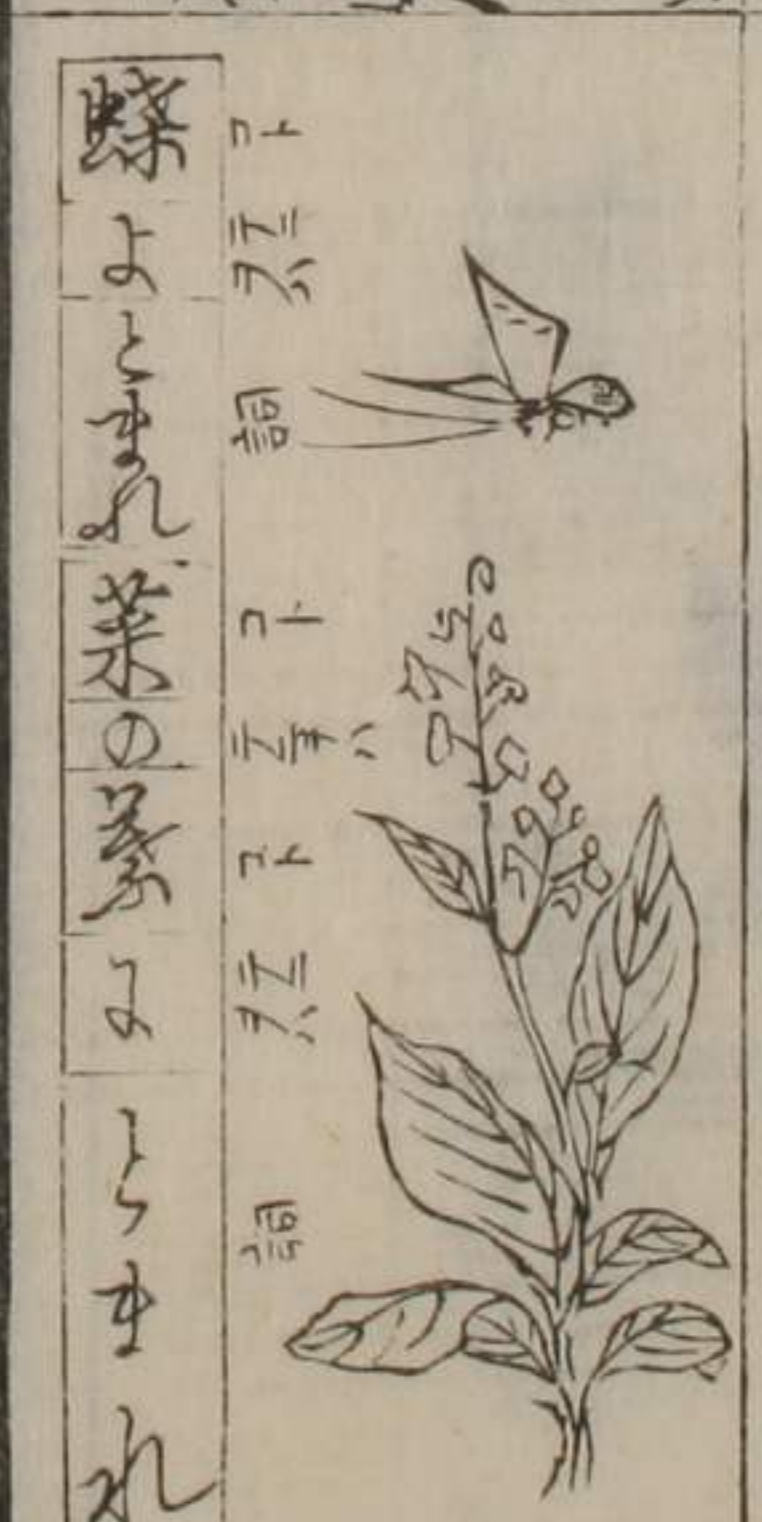 蝶よとまれ菜の葉にとまれ
コト
テニ
ヲハ
詞
コト
テニヲハ
コト
テニ
ヲハ
詞